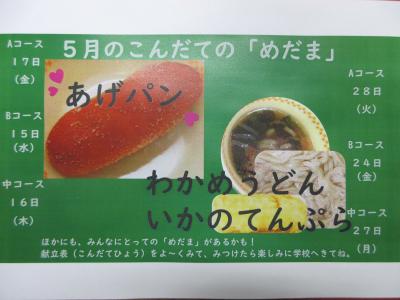 5月のこんだての「めだま」
Aコース
17日
(金)
Bコース
15日
(水)
中コース
16日
(木)
あげパン
わかめうどん
いかのてんぷら
Aコース
28日
(火)
Bコース
24日
(金)
中コース
27日
(月)
ほかにも、みんなにとっての「めだま」があるかも!
献立表(こんだてひょう)をよ~くみて、みつけたら楽しみに学校へきてね。